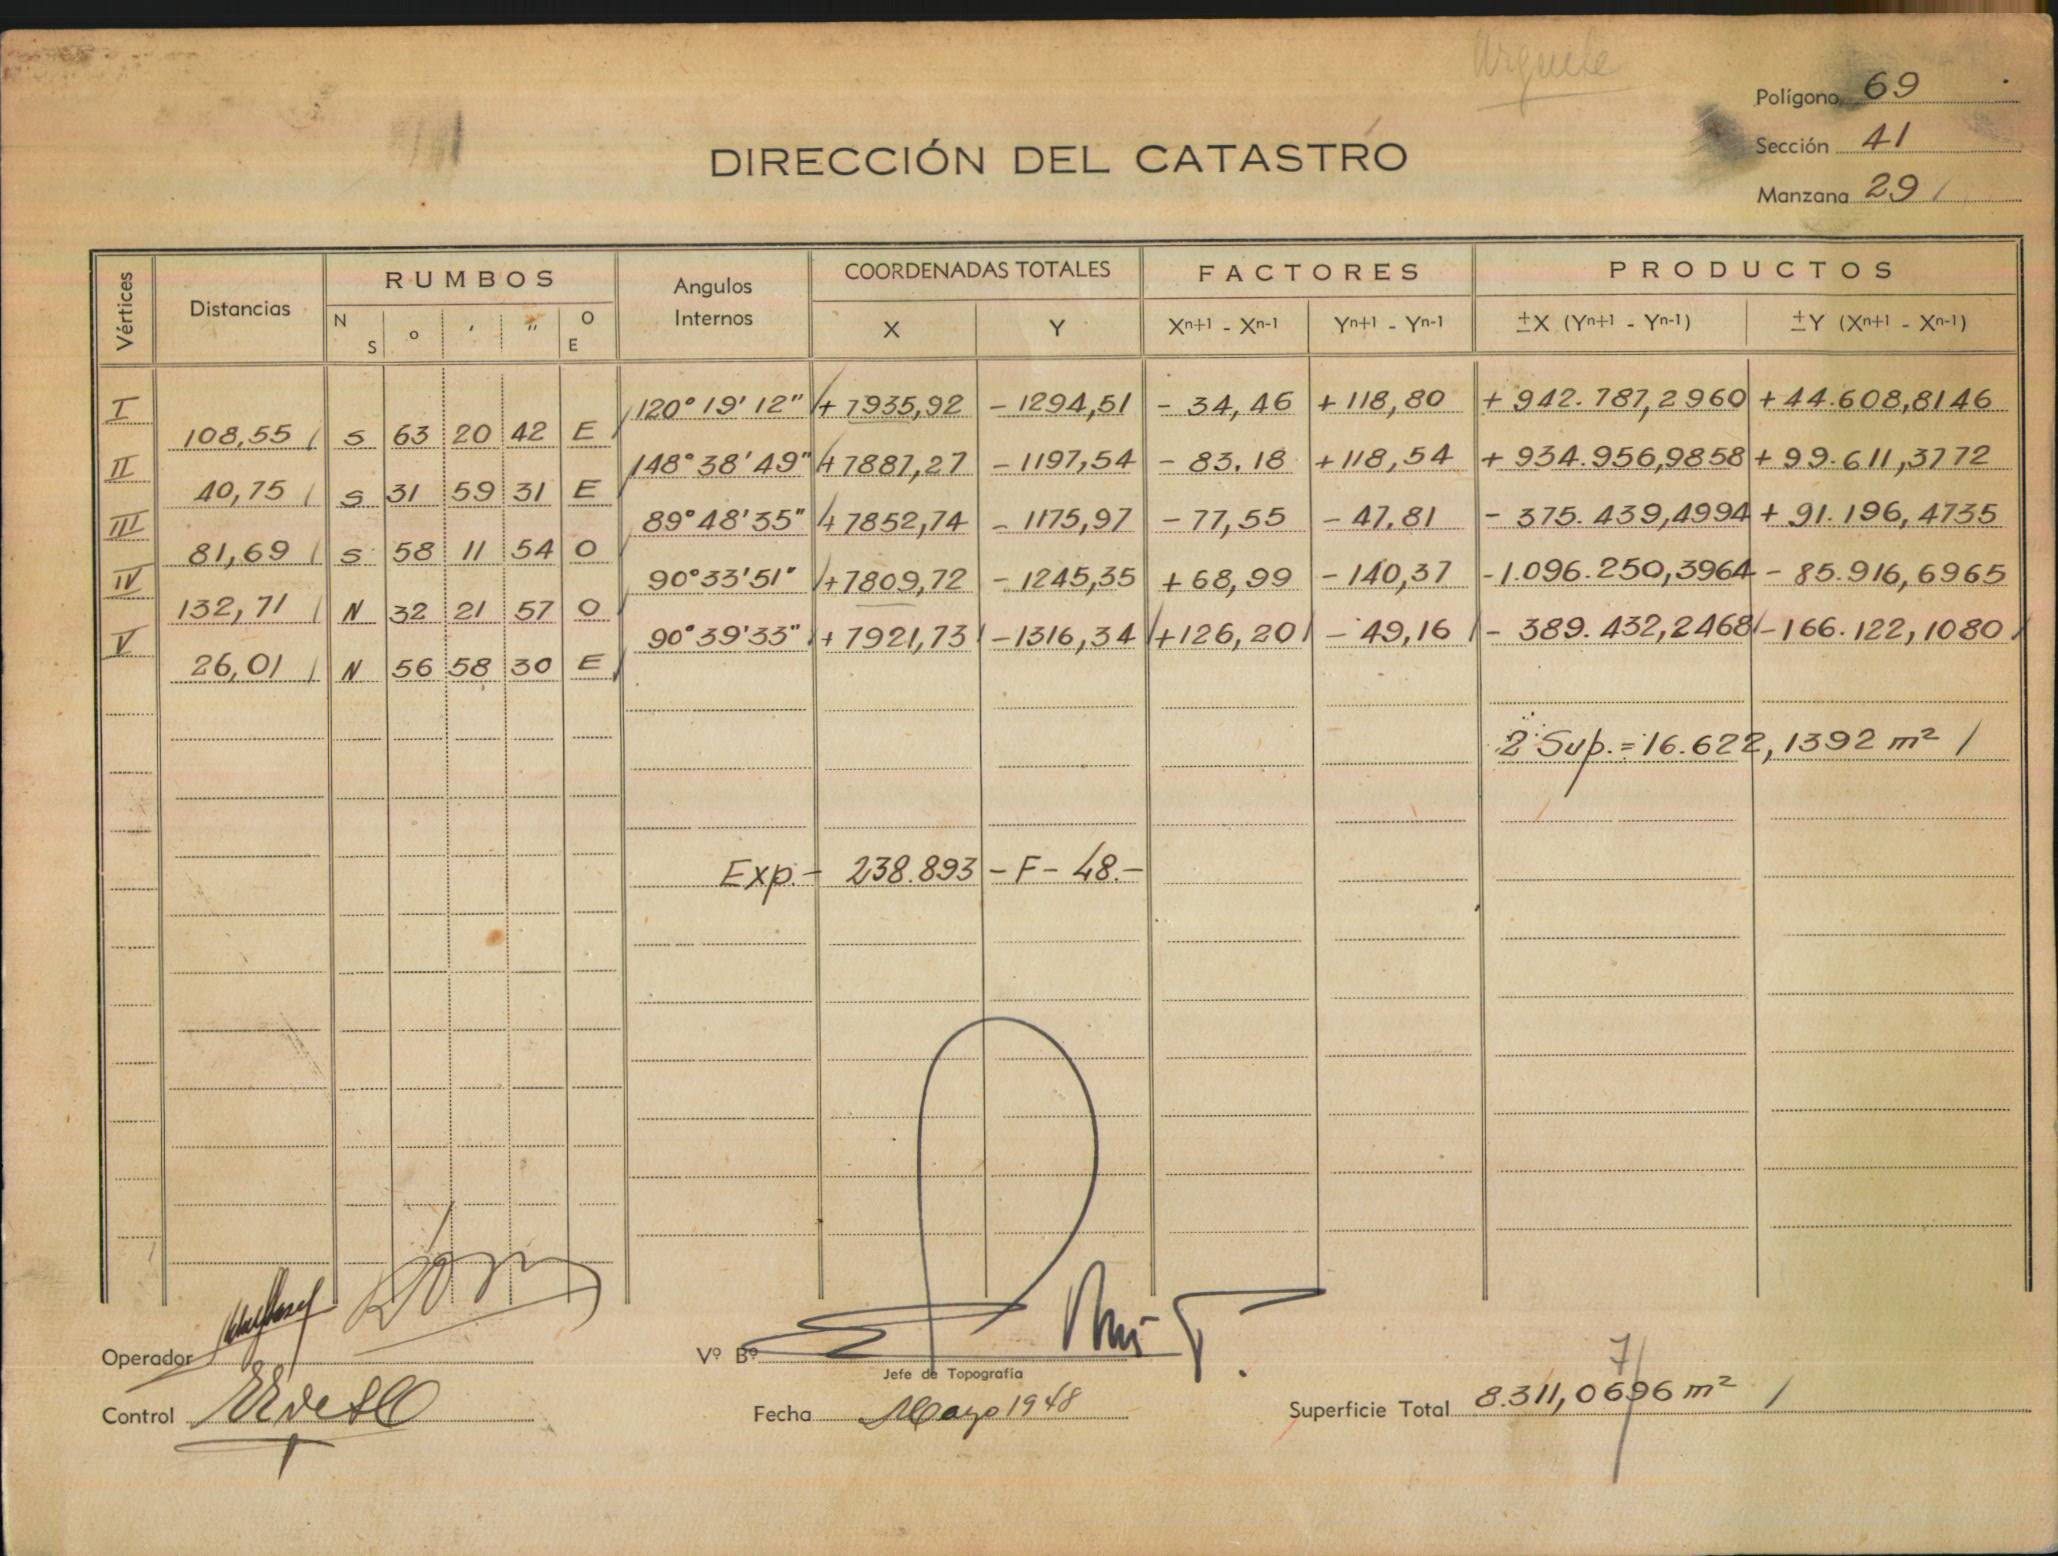 Arguello
Polígono 69
DIRECCIÓN DEL CATASTRO
Sección 41
Manzana 29
Vértices Distancias RUMBOS Angulos Internos COORDENADAS TOTALES FACTORES PRODUCTOS
N S ° ' " O E X Y Xn+1 - Xn-1 Yn+1 - Yn-1 ±X (Yn+1 - Yn-1) ±Y (Xn+1 - Xn-1)
I 120° 19' 12" + 7935,92 - 1294,51 - 34,46 + 118,80 + 942.787,2960 + 44.608,8146
108,55 S 63 20 42 E
II 148° 38' 49" + 7887,27 - 1197,54 - 83,18 + 118,54 + 934.956,9858 + 99.611,3772
40,75 S 31 59 31 E
III 89° 48' 35" + 7852,74 - 1175,97 - 77,55 - 47,81 - 375.439,4994 + 91.196,4735
81,69 S 58 11 54 O
IV 90° 33' 51" + 7809,72 - 1245,35 + 68,99 - 140,37 - 1.096.250,3964 - 85.916,6965
132,71 N 32 21 57 O
V 90° 39' 33" + 7921,73 - 1316,34 + 126,20 - 49,16 - 389.432,2468 - 166.122,1080
26,01 N 56 58 30 E
2 Sup. = 16.622,1392 m²
Exp.- 238.893 - F - 48.-
Operador
Vº Bº
Jefe de Topografía
7
Control
Fecha Mayo 1948
Superficie Total 8.311,0696 m²